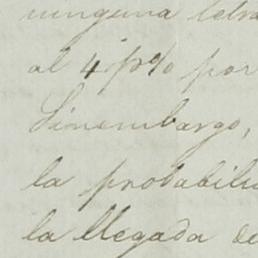 ninguna letra
al 4 p% por
Sinembargo,
la probabili
la llegada de